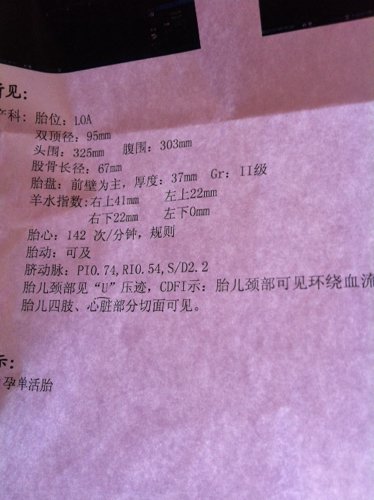 所见:
产科: 胎位: LOA
双顶径: 95mm
头围: 325mm 腹围: 303mm
股骨长径: 67mm
胎盘: 前壁为主, 厚度: 37mm Gr: II级
羊水指数: 右上41mm 左上22mm
右下22mm 左下0mm
胎心: 142 次/分钟, 规则
胎动: 可及
脐动脉: PI0.74, RI0.54, S/D2.2
胎儿颈部见 "U" 压迹, CDFI示: 胎儿颈部可见环绕血流
胎儿四肢、心脏部分切面可见。
示:
孕单活胎